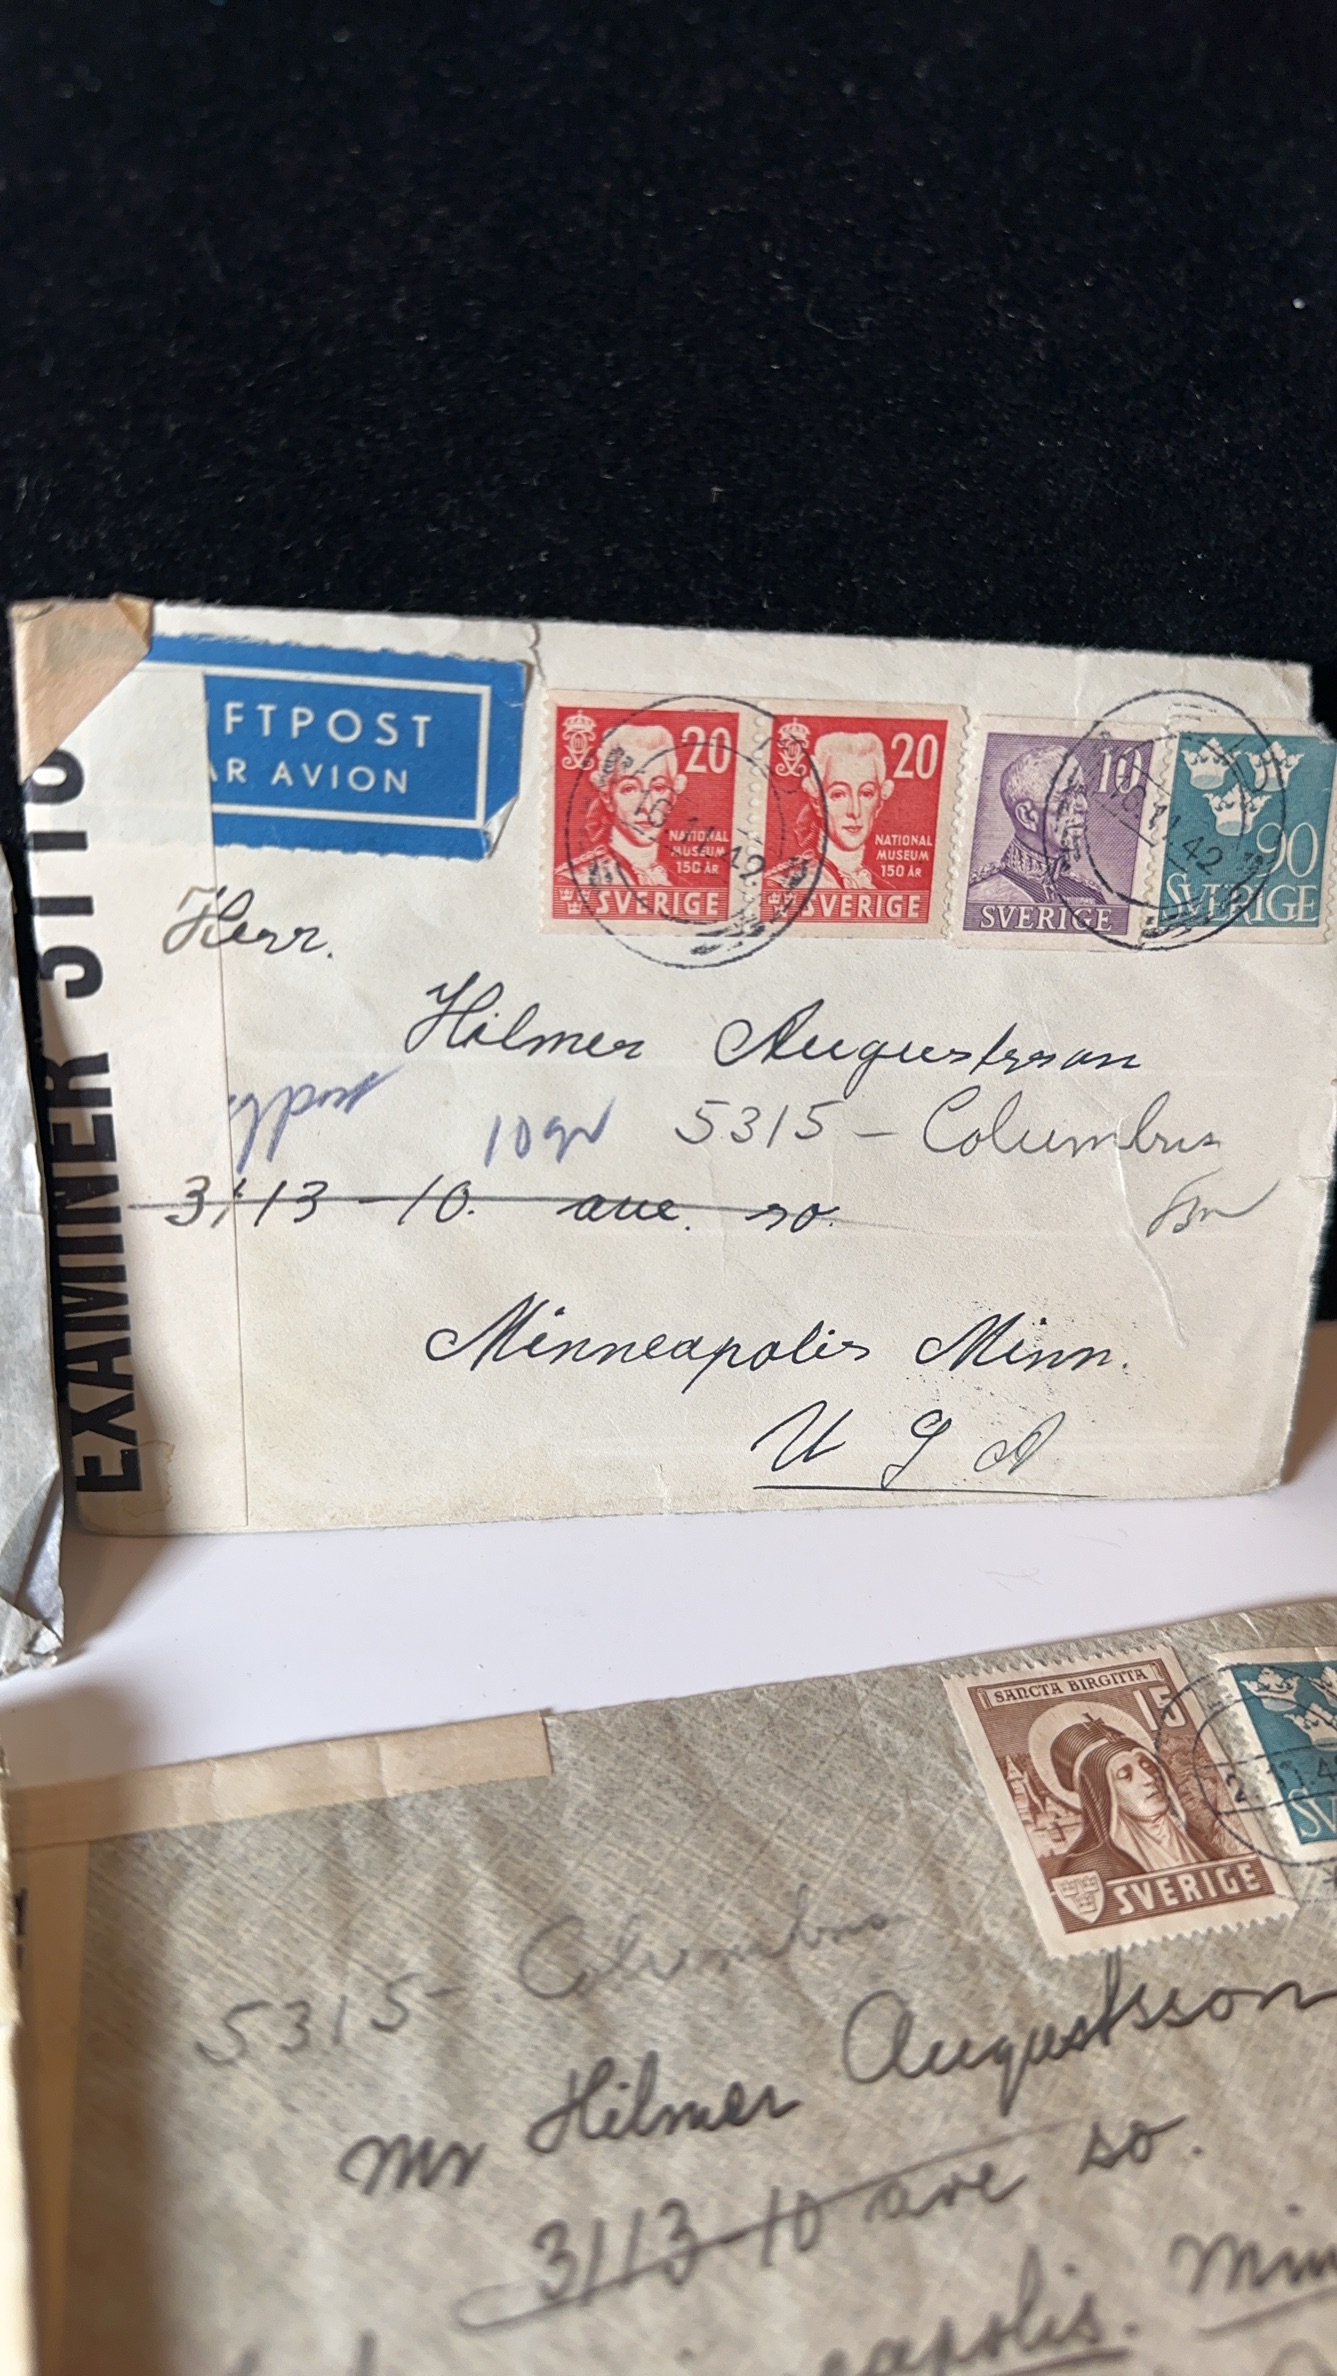 FTPOST
AR AVION
20
NATIONAL
MUSEUM
150 ÅR
SVERIGE
20
NATIONAL
MUSEUM
150 ÅR
SVERIGE
10
SVERIGE
90
SVERIGE
42
42
EXAMINER
Herr.
Hilmer Augustsson
10 gr 5315 - Columbus
3113 - 10. ave. so.
Minneapolis Minn.
U S A
SANCTA BIRGITTA
15
SVERIGE
SV
5315 - Columbus
Mr Hilmer Augustsson
3113 - 10 ave so.
eapolis. Min